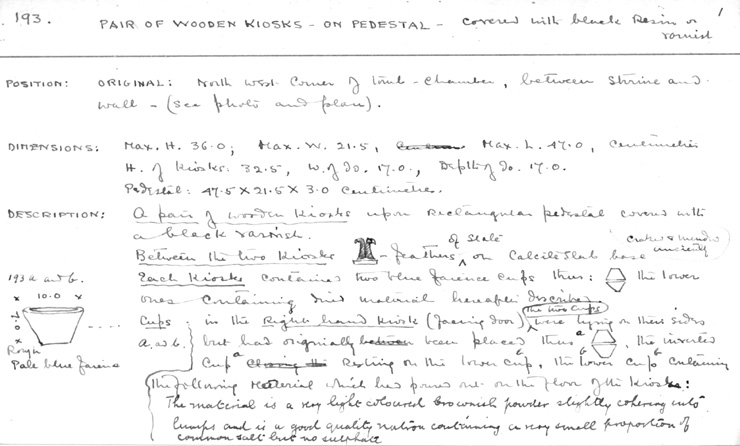 193.
1
PAIR OF WOODEN KIOSKS - ON PEDESTAL - covered with black Resin or
varnish
POSITION: ORIGINAL: North West Corner of tomb-chamber, between Shrine and
wall - (see photo and plan).
DIMENSIONS: Max. H. 36.0; Max. W. 21.5, Max. L. 47.0, Centimetres
H. of Kiosks. 32.5, W. of Do. 17.0, Depth of Do. 17.0.
Pedestal: 47.5 X 21.5 X 3.0 Centimetres.
DESCRIPTION: A pair of wooden Kiosks upon Rectangular pedestal covered with
a black varnish.
Between the two Kiosks - feathers of slate on Calcite slab base cracked & mended anciently
193 a and b. Each Kiosk contained two blue faience cups thus: the lower
x 10.0 x
ones containing dried material hereafter described
Cups a. and b. in the Right hand Kiosk (facing door) The two cups were lying on their sides
x 7.0 x
but had originally been placed thus a b, the inverted
Rough
Cup a Resting on the lower Cup b, the lower cup b containing
Pale blue faience
the following Material which has poured out on the floor of the Kiosk:
The material is a very light coloured brownish powder slightly cohering into
lumps and is a good quality natron containing a very small proportion of
common salt but no sulphate